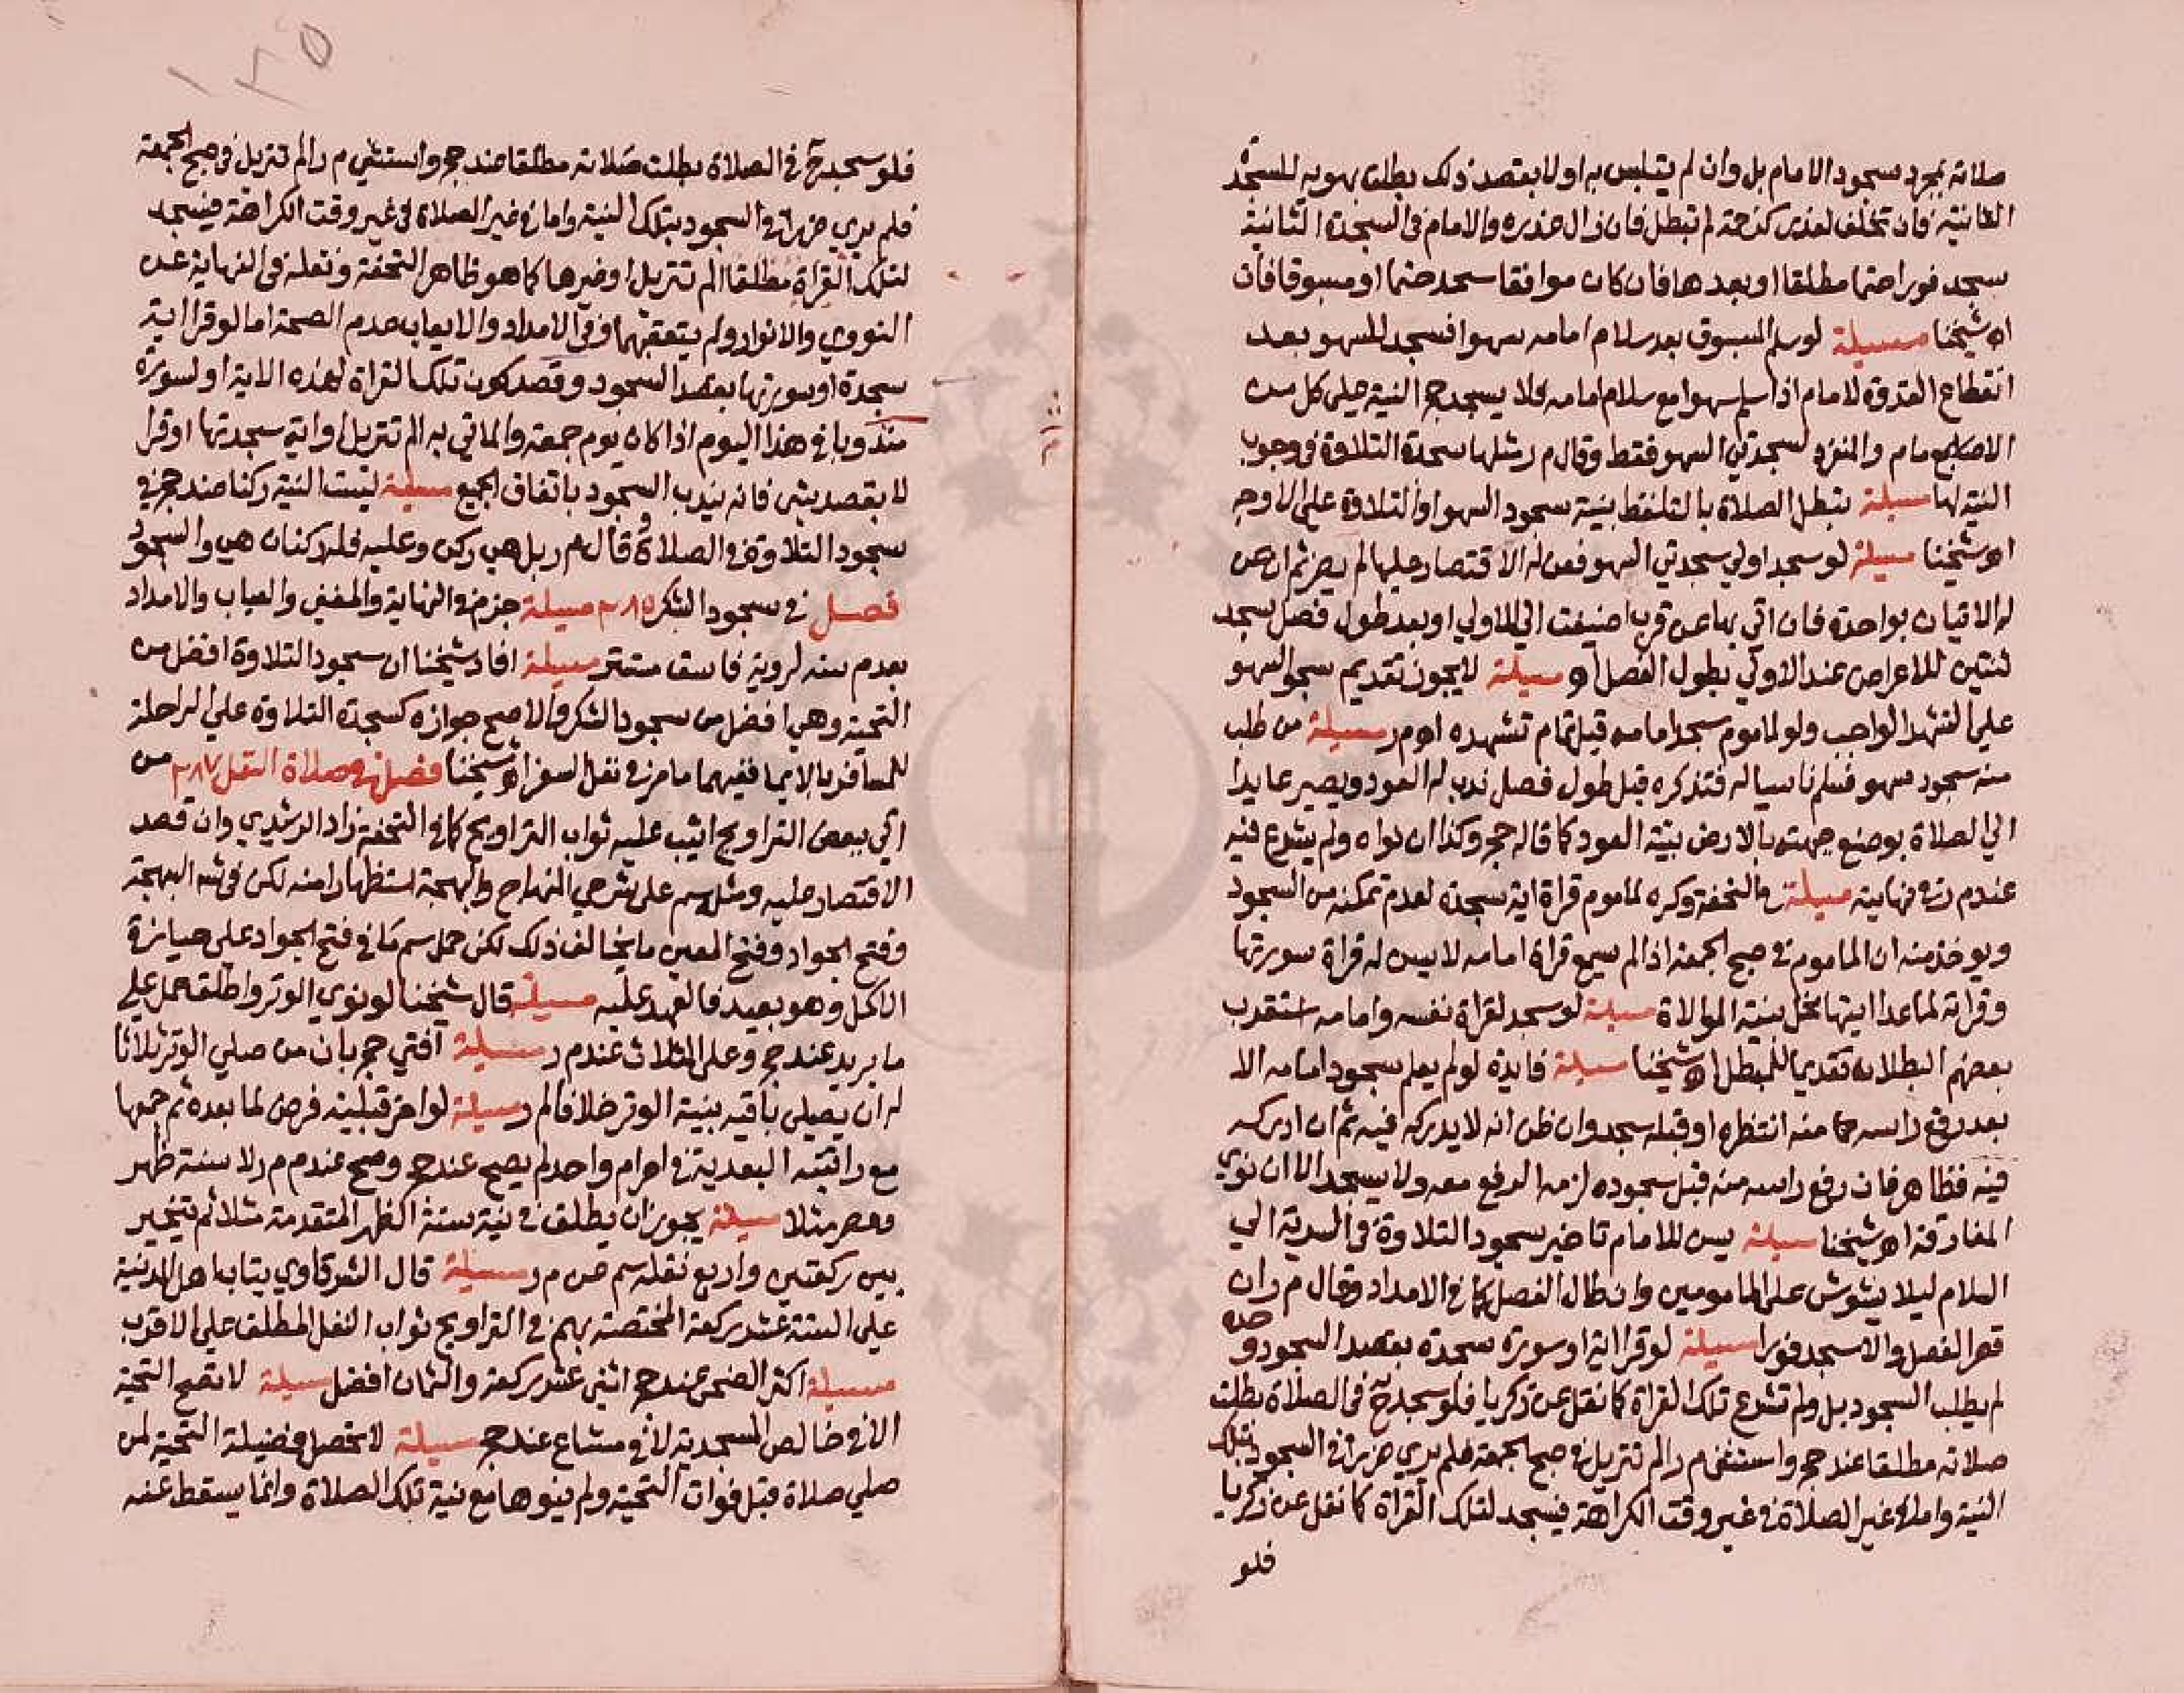 صلاته بمجرد سجود الامام بل وان لم يتلبس به او لا بقصد ذلك بطلت بهويه للسجدة
الثانية فان تخلف لعذر كزحمة لم تبطل فان زال عذره والامام في السجدة الثانية
سجد فورا حتما مطلقا او بعدها فان كان موافقا سجد حتما او مسبوقا فلا
اه شيخنا مسيلة لو سلم المسبوق بعد سلام امامه سهوا فسجد للسهو بعد
انقطاع القدوة لا مام اذا سلم سهوا مع سلام امامه فلا يسجد حج النية على كل من
الامام والمنفرد لسجدتي السهو فقط وقال م ر مثلها سجدة التلاوة في وجوب
النية لها مسيلة تبطل الصلاة بالتلفظ بنية سجود السهو او التلاوة على الاوجه
اه شيخنا مسيلة لو سجد اولى سجدتي السهو فعن له الاقتصار عليها لم يضر ثم ان عن
له الاتيان بواحدة فان اتي بها عن قرب اضيفت الي الاولي او بعد طول فصل سجد
ثنتين للاعراض عند الاولي بطول الفصل اه مسيلة لا يجوز تقديم سجو السهو
على التشهد الواجب ولو لماموم سجد امامه قبل تمام تشهده اه م ر مسيلة من طلب
منه سجود سهو فسلم ناسيا له فتذكره قبل طول فصل ندب له العود ويصير عايدا
الي الصلاة بوضع جبهته بالارض بنية العود كما قاله حج وكذا ان نواه ولم يشرع فيه
عند م ر في نهايته مسيلة في التحفة وكره لماموم قراة اية سجدة لعدم تمكنه من السجود
ويوخذ منه ان الماموم في صبح الجمعة اذا لم يسمع قراة امامه لا يسن له قراة سورتها
وقراته لما عدا ايتها يخل بسنة الموالاة مسيلة لو سجد لقراة نفسه وامامه استقرب
بعضهم البطلان تقديما للمبطل اه شيخنا مسيلة فايدة لو لم يعلم سجود امامه الا
بعد رفع راسه منه انتظره او قبله سجد وان ظن انه لا يدركه فيه ثم ان ادركه
فيه فظاهر فان رفع راسه منه قبل سجوده لزمه الرفع معه ولا يسجد الا ان نوي
المفارقة اه شيخنا مسيلة يسن للامام تاخير سجود التلاوة في السرية الي
السلام ليلا يشوش على المامومين وان طال الفصل كما في الامداد وقال م ر ان
قصر الفصل والا سجد فورا مسيلة لو قرا اية او سورة سجدة بقصد السجود وحده
لم يطلب السجود بل ولم تشرع تلك القراة كما نقل عن زكريا فلو سجد ح في الصلاة بطلت
صلاته مطلقا عند حج واستثني م ر الم تنزيل في صبح الجمعة فلم يري ضررا في السجود بتلك
النية واما في غير الصلاة في غير وقت الكراهة فيسجد لتلك القراة كما نقل عن زكريا
فلو
١٢٥
فلو سجد ح في الصلاة بطلت صلاته مطلقا عند حج واستثني م ر الم تنزيل في صبح الجمعة
فلم يري ضررا في السجود بتلك النية واما في غير الصلاة في غير وقت الكراهة فيسجد
لتلك القراة مطلقا الم تنزيل او غيرها كما هو ظاهر التحفة ونقله في النهاية عن
النووي والانوار ولم يتعقبهما وفي الامداد والايعاب عدم الصحة اما لو قرا اية
سجدة او سورتها بقصد السجود وقصد كون تلك القراة لهذه الاية او لسورة
مندوبا في هذا اليوم اذا كان يوم جمعة والماتي به الم تنزيل او اية سجدتها او قرا
لا بقصد شي فانه يندب السجود باتفاق الجميع مسيلة ليست النية ركنا عند حج في
سجود التلاوة في الصلاة وقال م ر بل هي ركن وعليه فله ركنان هي والسجود
فصل في سجود الشكر ٢٨٥ مسيلة جزم في النهاية والمغني والعباب والامداد
بعدم سنه لروية فاسق مستتر مسيلة افاد شيخنا ان سجود التلاوة افضل من
التحية وهي افضل من سجود الشكر والاصح جوازه كسجدة التلاوة على الراحلة
للمسافر بالايما ففيهما ما مر في نفل السفر اه شيخنا فصل في صلاة النفل ٢٨٧ من
اتي ببعض التراويح اثيب عليه ثواب التراويح كما في التحفة زاد الرشيدي وان قصد
الاقتصار عليه ومثله سم على شرحي المنهاج والبهجة استظهارا منه لكن في شرح البهجة
وفتح الجواد وفتح المعين ما يخالف ذلك لكن حمل سم ما في فتح الجواد على حيازة
الاكمل وهو بعيد فالعهدة عليه مسيلة قال شيخنا لو نوي الوتر واطلق حمل على
ما يريد عند حج وعلى الثلاث عند م ر مسيلة افتي حج بان من صلي الوتر ثلاثا
له ان يصلي باقيه بنية الوتر خلافا لم ر مسيلة لو اخر قبلية فرض لما بعده ثم جمعها
مع راتبته البعدية في احرام واحد لم يصح عند حج وصح عند م ر لا سنة ظهر
وعصر مثلا مسيلة يجوز ان يطلق في نية سنة الظهر المتقدمة مثلا ثم يتخير
بين ركعتين واربع نقله سم عن م ر مسيلة قال الشرقاوي يثاب اهل المدينة
على الستة عشر ركعة المختصة بهم في التراويح ثواب النفل المطلق على الاقرب
مسيلة اكثر الضحى عند حج اثني عشر ركعة والثمان افضل مسيلة لا تصح التحية
الا في خالص المسجدية لا في مشاع عند حج مسيلة لا تحصل فضيلة التحية لمن
صلي صلاة قبل فوات التحية ولم ينوها مع نية تلك الصلاة وانما يسقط عنه